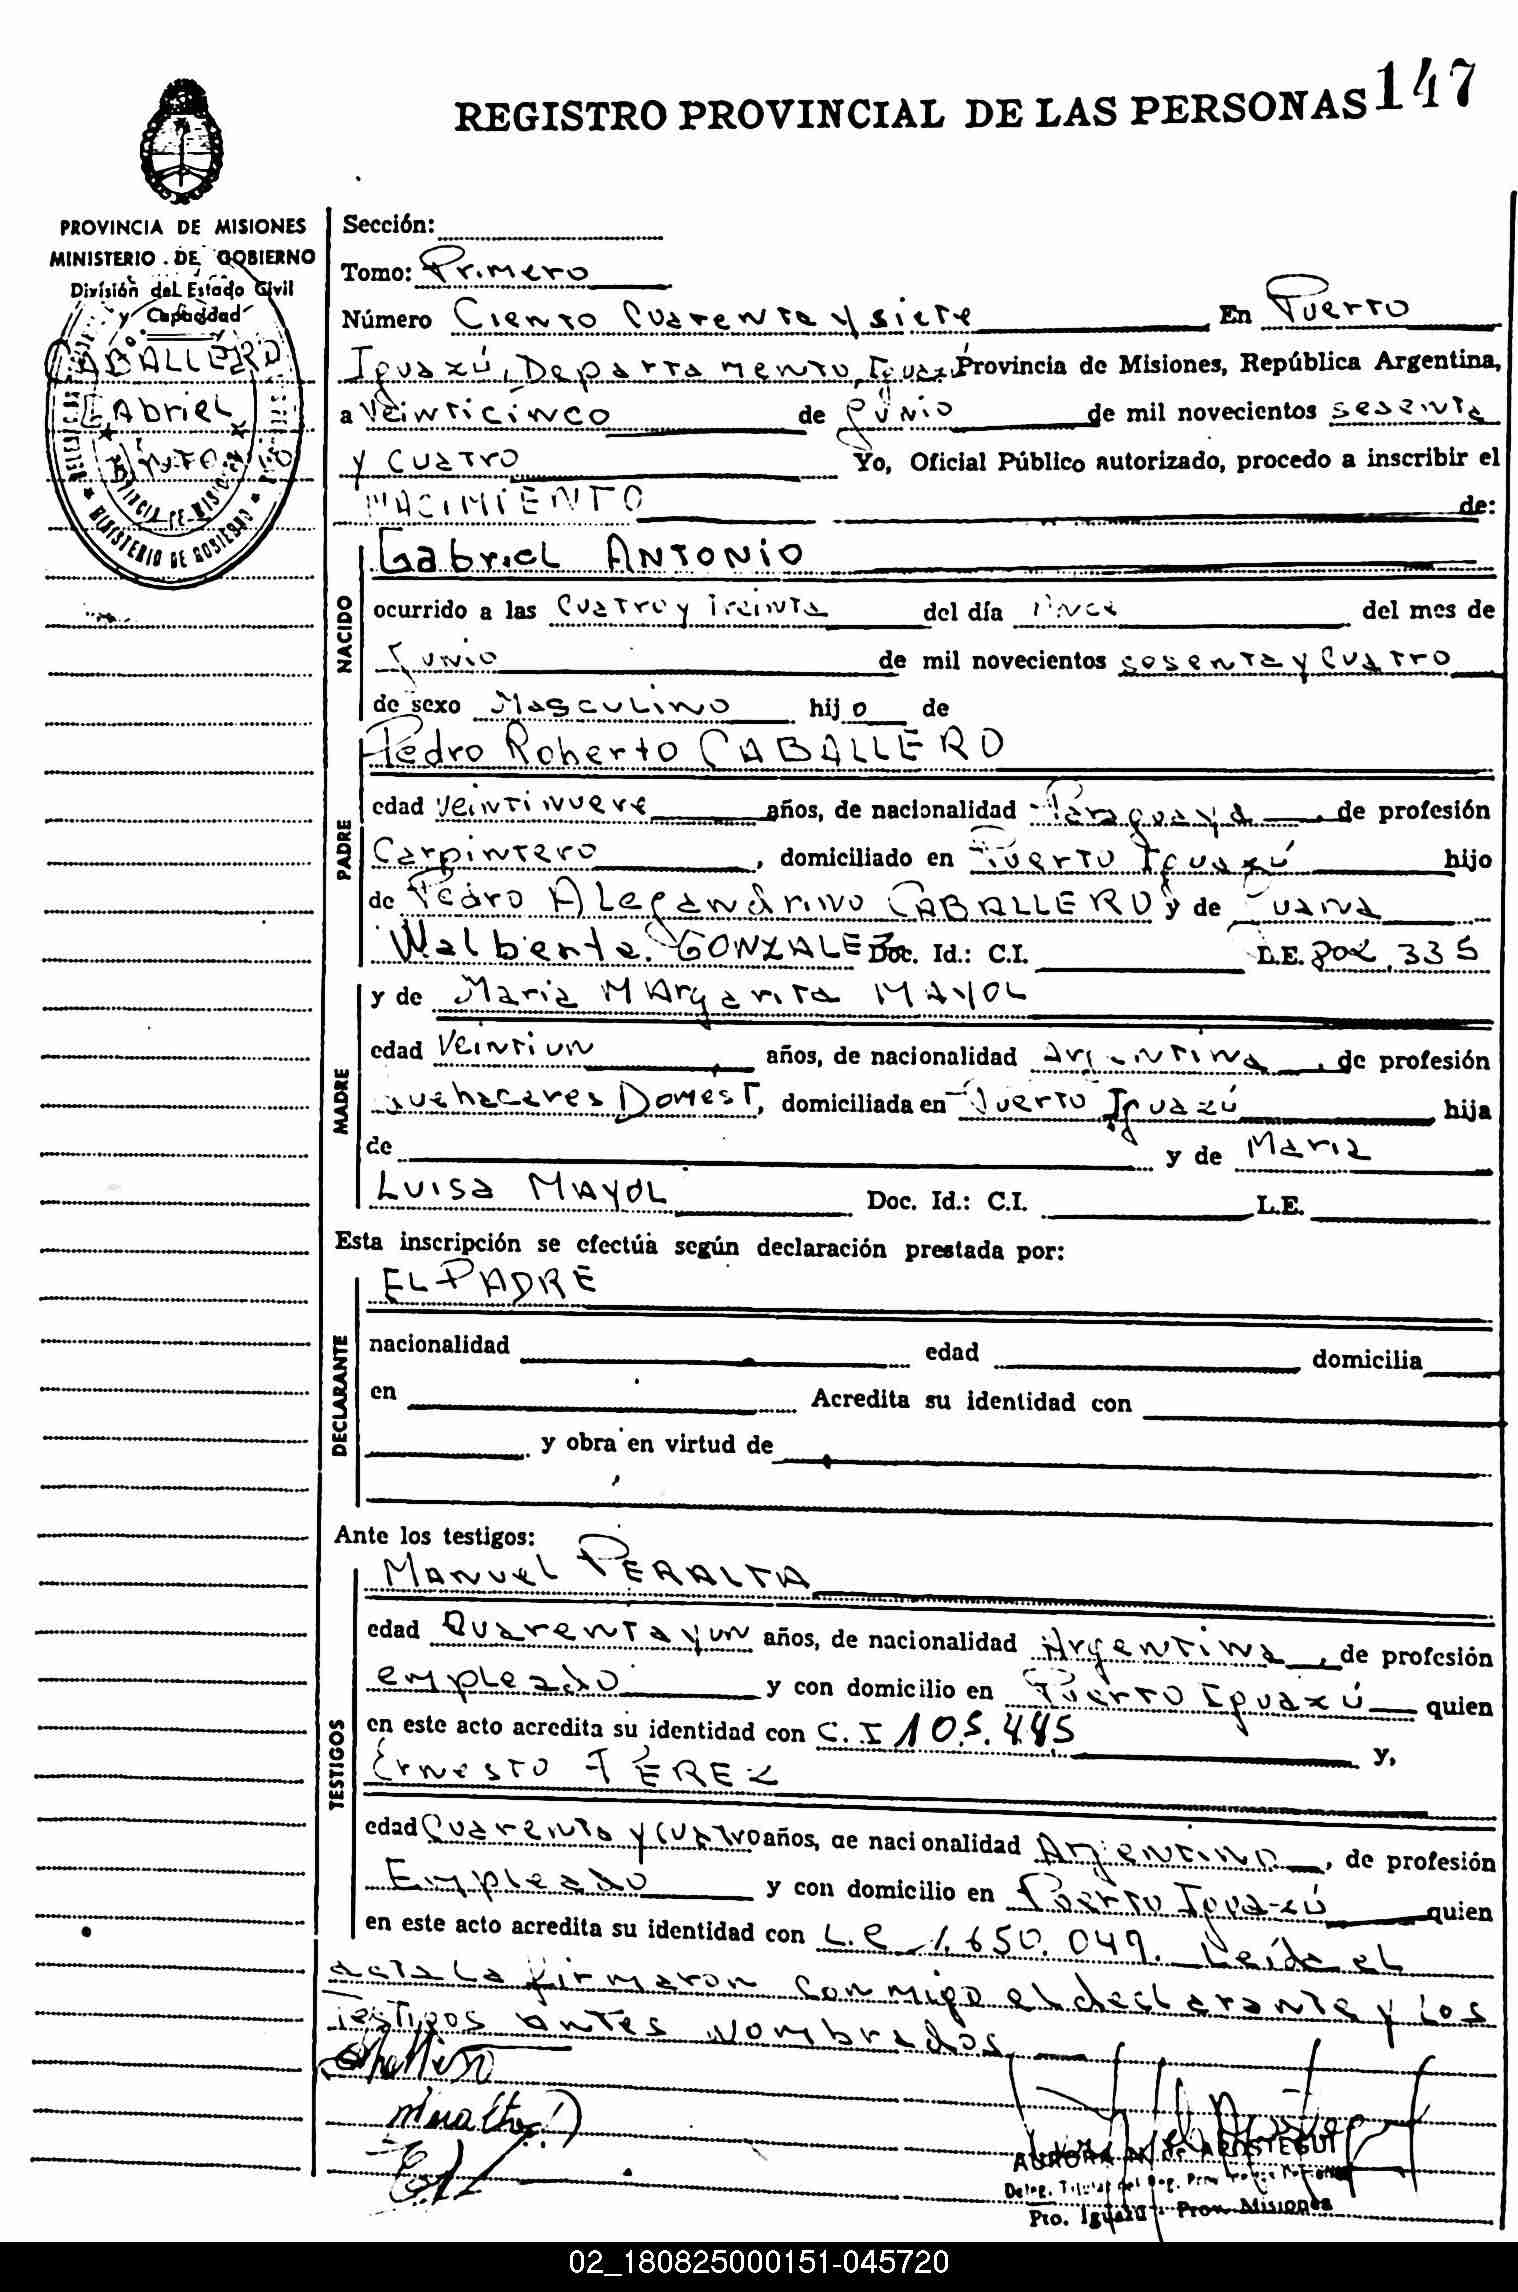 REGISTRO PROVINCIAL DE LAS PERSONAS 147
PROVINCIA DE MISIONES
MINISTERIO DE GOBIERNO
División del Estado Civil
y Capacidad
CABALLERO
Gabriel
Antonio
PROVINCIA DE MISIONES
MINISTERIO DE GOBIERNO
Sección:
Tomo: Primero
Número Ciento Cuarenta y siete En Puerto
Iguazú, Departamento, Iguazú Provincia de Misiones, República Argentina,
a Veinticinco de Junio de mil novecientos sesenta
y cuatro Yo, Oficial Público autorizado, procedo a inscribir el
NACIMIENTO de:
NACIDO
Gabriel ANTONIO
ocurrido a las Cuatro y Treinta del día once del mes de
Junio de mil novecientos sesenta y Cuatro
de sexo Masculino hijo de
PADRE
Pedro Roberto CABALLERO
edad Veintinueve años, de nacionalidad Paraguaya, de profesión
Carpintero, domiciliado en Puerto Iguazú hijo
de Pedro Alejandrino CABALLERO y de Juana
Walberta GONZALEZ Doc. Id.: C.I. L.E. 802.335
MADRE
y de Maria MArgarita MAYOL
edad Veintiun años, de nacionalidad Argentina, de profesión
Quehaceres Domest, domiciliada en Puerto Iguazú hija
de y de Maria
Luisa MAYOL Doc. Id.: C.I. L.E.
Esta inscripción se efectúa según declaración prestada por:
DECLARANTE
EL PADRE
nacionalidad edad domicilia
en Acredita su identidad con
y obra en virtud de
Ante los testigos:
TESTIGOS
Manuel PERALTA
edad Quarenta y un años, de nacionalidad Argentina, de profesión
empleado y con domicilio en Puerto Iguazú quien
en este acto acredita su identidad con C.I 105.445 y,
Ernesto PÉREZ
edad Cuarenta y cuatro años, de nacionalidad Argentino, de profesión
Empleado y con domicilio en Puerto Iguazú quien
en este acto acredita su identidad con L.E 1.650.049. Leída el
acta La firmaron conmigo el declarante y Los
Testigos antes nombrados
AURORA de AROSTEGUI
Deleg. Titular del Reg. Prov.
Pto. Iguazú - Prov. Misiones
02_180825000151-045720